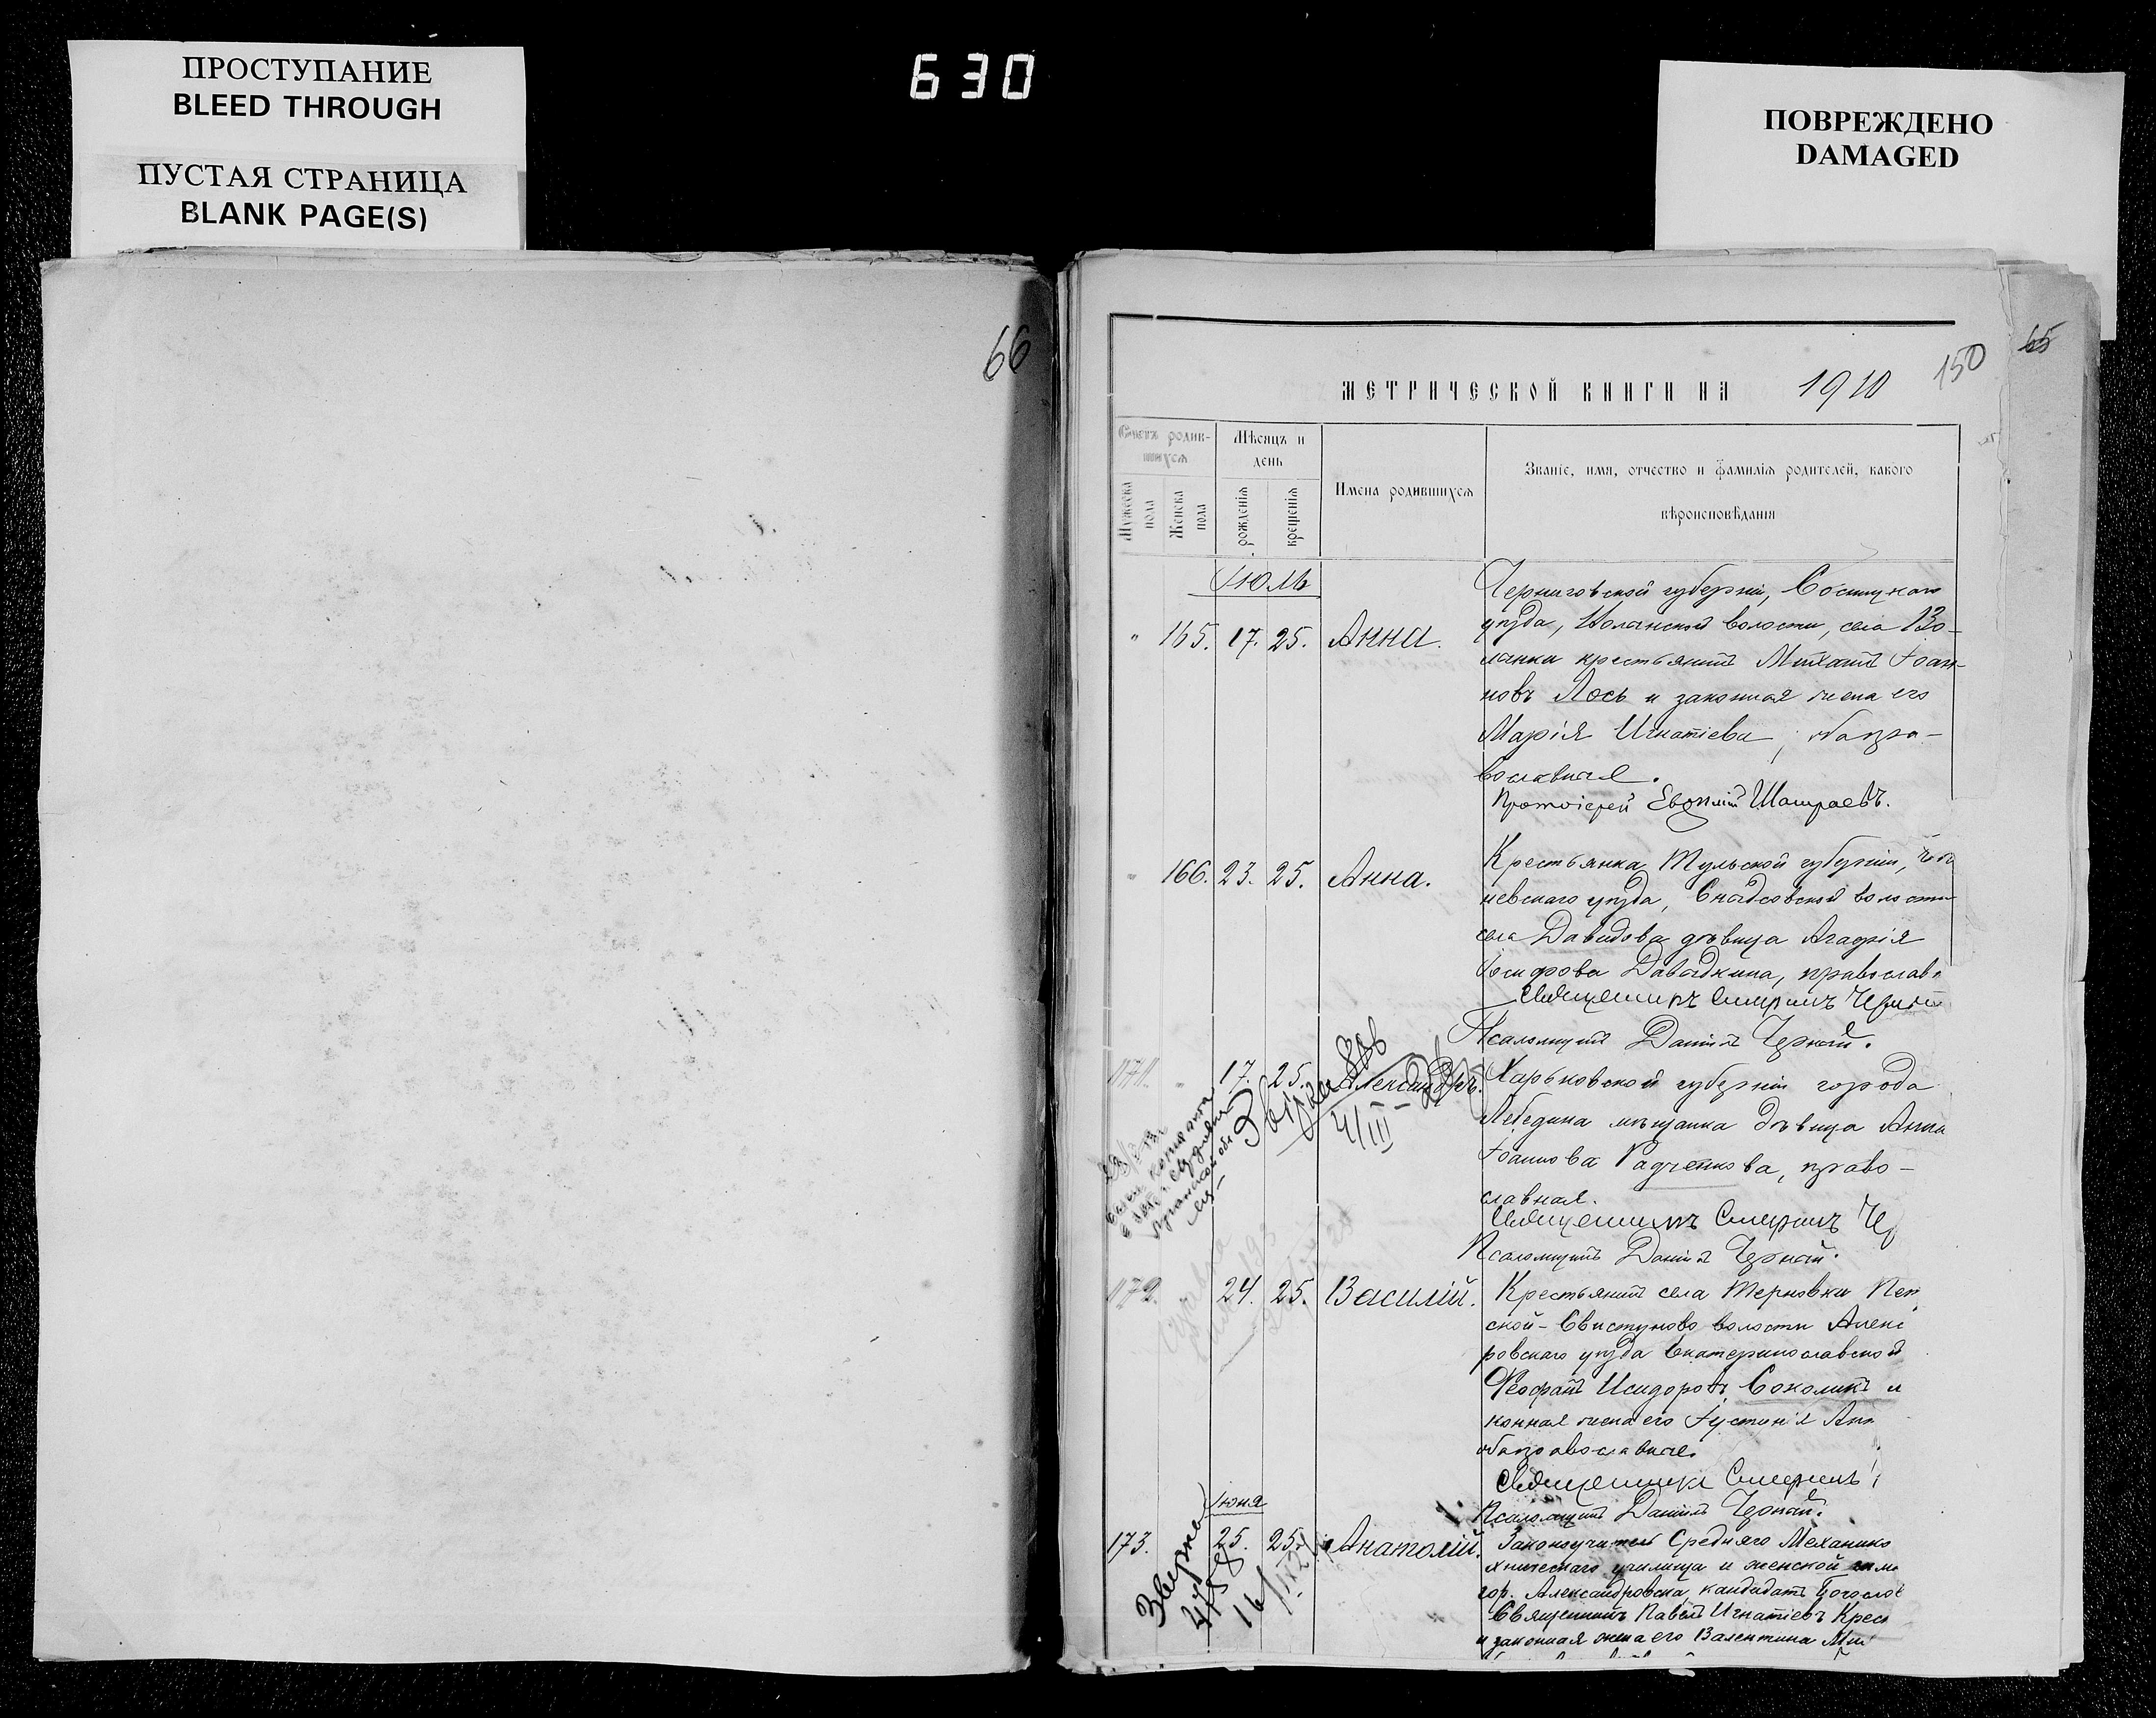 ПРОСТУПАНИЕ
BLEED THROUGH
ПУСТАЯ СТРАНИЦА
BLANK PAGE(S)
630
ПОВРЕЖДЕНО
DAMAGED
66
65
150
МЕТРИЧЕСКОЙ КНИГИ НА 1910
Счетъ родив-
шихся
Мѣсяцъ и
день
Мужеска
пола
Женска
пола
рожденія
крещенія
Имена родившихся
Званіе, имя, отчество и фамилія родителей, какого
вѣроисповѣданія
Іюль
" 165. 17. 25. Анна.
Черниговской губерніи, Сосницкаго
уѣзда, волости, села Во-
лынки крестьянинъ Михаилъ Іоан-
новъ Лось и законная жена его
Марія Игнатіева, оба пра-
вославные.
Протоіерей Евѳимій
" 166. 23. 25. Анна.
Крестьянка Тульской губерніи,
невскаго уѣзда, волости
села Давидова дѣвица Агафія
Іосифова Давыдкина, православ
Священникъ
Псаломщикъ Даніилъ Черный.
171. " 17. 25. Александръ.
Харьковской губерніи города
Лебедина мѣщанка дѣвица Анна
Іоаннова Радченкова, право-
славная.
Священникъ
Псаломщикъ Даніилъ Черный.
4/III
172. 24. 25. Василій.
Крестьянинъ села Терновки Пет
ской-Свистуново волости Алекс
ровскаго уѣзда Екатеринославской
Феофанъ Исидоровъ Соколикъ и
конная жена его Іустинія Анн
оба православные.
Священникъ
Псаломщикъ Даніилъ Черный.
Іюня
173. 25. 25. Анатолій.
Законоучитель Средняго Механико
хническаго училища и женской гимн
гор. Александровска, кандидатъ Богослов
Священникъ Павелъ Игнатіевъ Крес
и законная жена его Валентина Ми